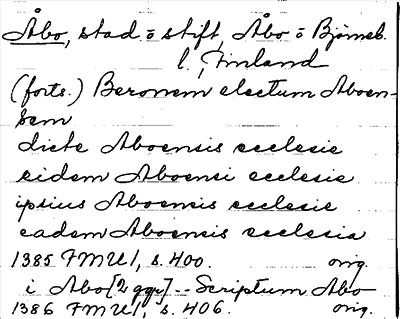 Åbo, stad o stift, Åbo o Björneb.
l., Finland
(forts.) Beronem electum Aboen-
sem
dicte Aboensis ecclesie
eidem Aboensi ecclesie
ipsius Aboensis ecclesie
eadem Aboensis ecclesia
1385 FMU 1, s. 400. orig.
i Abo [2 ggr] -- Scriptum Abo
1386 FMU 1, s. 406. orig.